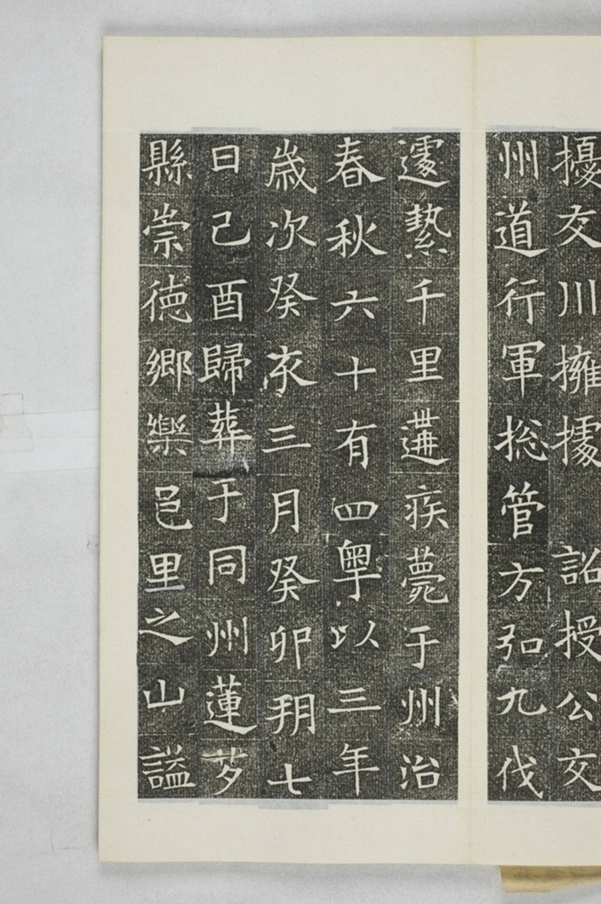 擾交川擁據詔授公交
州道行軍捴管方引九伐
遽縶千里遘疾薨于州治
春秋六十有四粵以三年
歳次癸亥三月癸卯朔七
日己酉歸葬于同州蓮芍
縣崇德鄉樂邑里之山謚